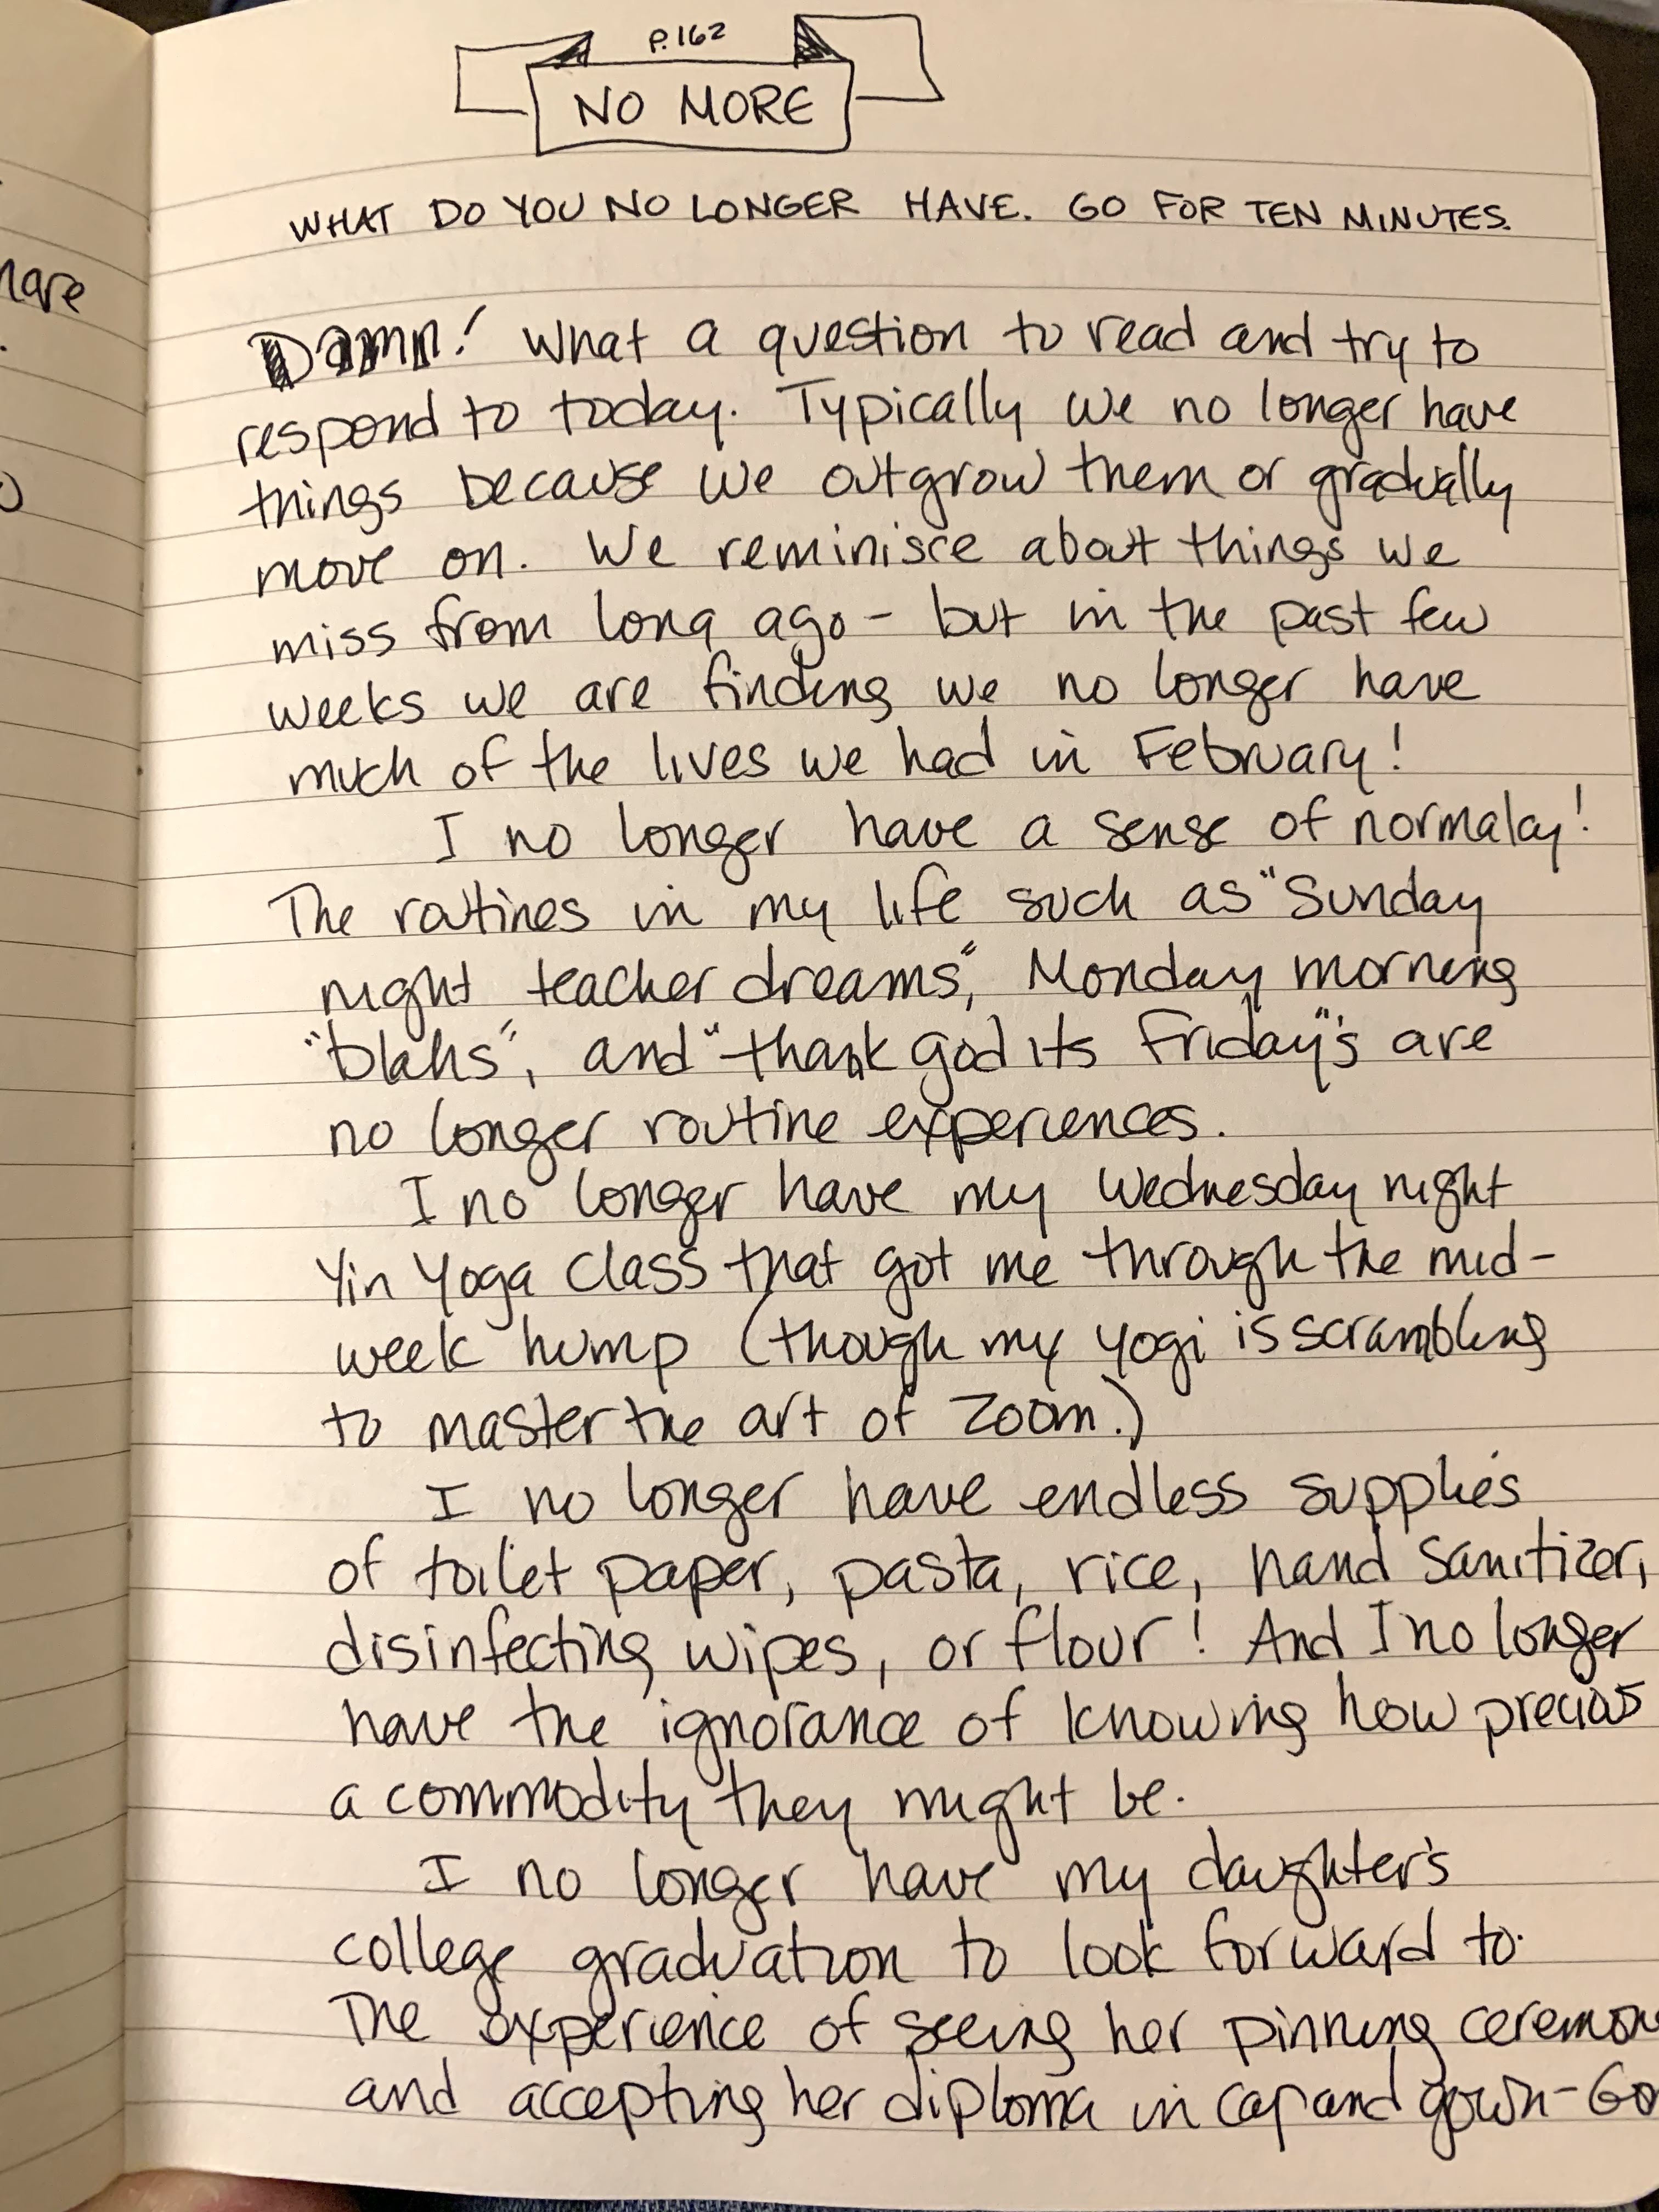 P.162
NO MORE
WHAT DO YOU NO LONGER HAVE. GO FOR TEN MINUTES.
Damn! What a question to read and try to
respond to today. Typically we no longer have
things because we outgrow them or gradually
move on. We reminisce about things we
miss from long ago - but in the past few
weeks we are finding we no longer have
much of the lives we had in February!
I no longer have a sense of normalcy!
The routines in my life such as "Sunday
night teacher dreams", Monday morning
"blahs", and "thank god its Friday"'s are
no longer routine experiences.
I no longer have my Wednesday night
Yin Yoga class that got me through the mid-
week hump (though my yogi is scrambling
to master the art of Zoom.)
I no longer have endless supplies
of toilet paper, pasta, rice, hand sanitizer,
disinfecting wipes, or flour! And I no longer
have the ignorance of knowing how precious
a commodity they might be.
I no longer have my daughter's
college graduation to look forward to.
The experience of seeing her pinning
and accepting her diploma in cap and gown-